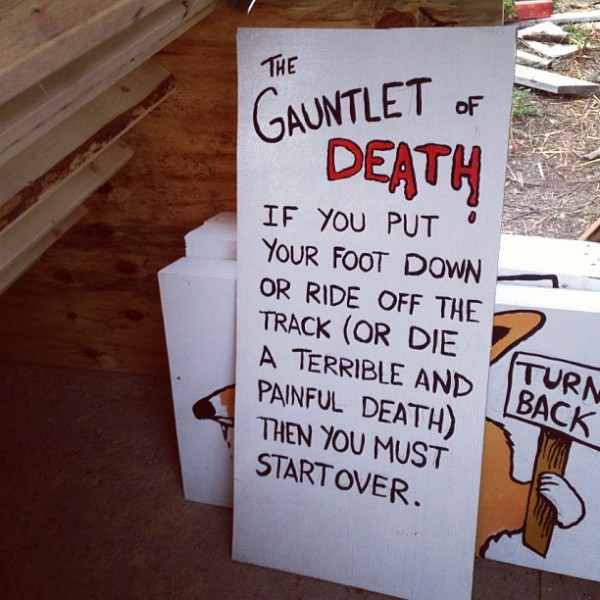 THE
GAUNTLET OF
DEATH
IF YOU PUT
YOUR FOOT DOWN
OR RIDE OFF THE
TRACK (OR DIE
A TERRIBLE AND
PAINFUL DEATH)
THEN YOU MUST
START OVER.
TURN
BACK